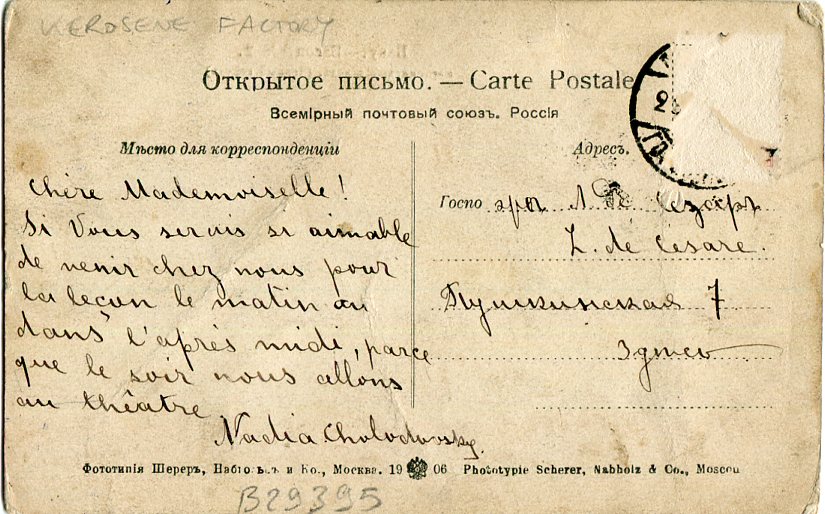 KEROSENE FACTORY
Открытое письмо. — Carte Postale
Всемірный почтовый союзъ. Россія
Мѣсто для корреспонденціи
Адресъ.
Chère Mademoiselle!
Si Vous serais si aimable
de venir chez nous pour
la leçon le matin ou
dans l'après midi, parce
que le soir nous allons
au théâtre
Nadia Cholodovsky.
Госпо жѣ Л. Чезаре
L. de Cesare.
Пушкинская 7
Здѣсь
Фототипія Шереръ, Набгольцъ и Ко., Москва. 19 06 Phototypie Scherer, Nabholz & Co., Moscou
B29395